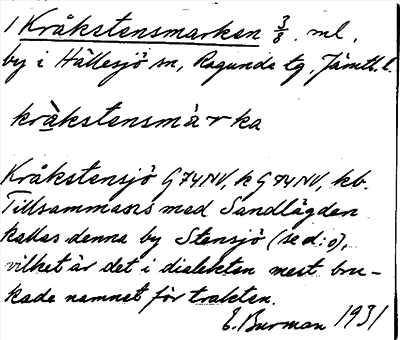 1 Kråkstensmarken 3/8 ml,
by i Hällesjö sn, Ragunda tg. Jämtl. l.
kråkstensmàrka
Kråkstensjö G74NV, k G74NV, kb.
Tillsammans med Sandlägden
kallas denna by Stensjö (se d:o),
vilket är det i dialekten mest bru-
kade namnet för trakten.
E. Burman 1931